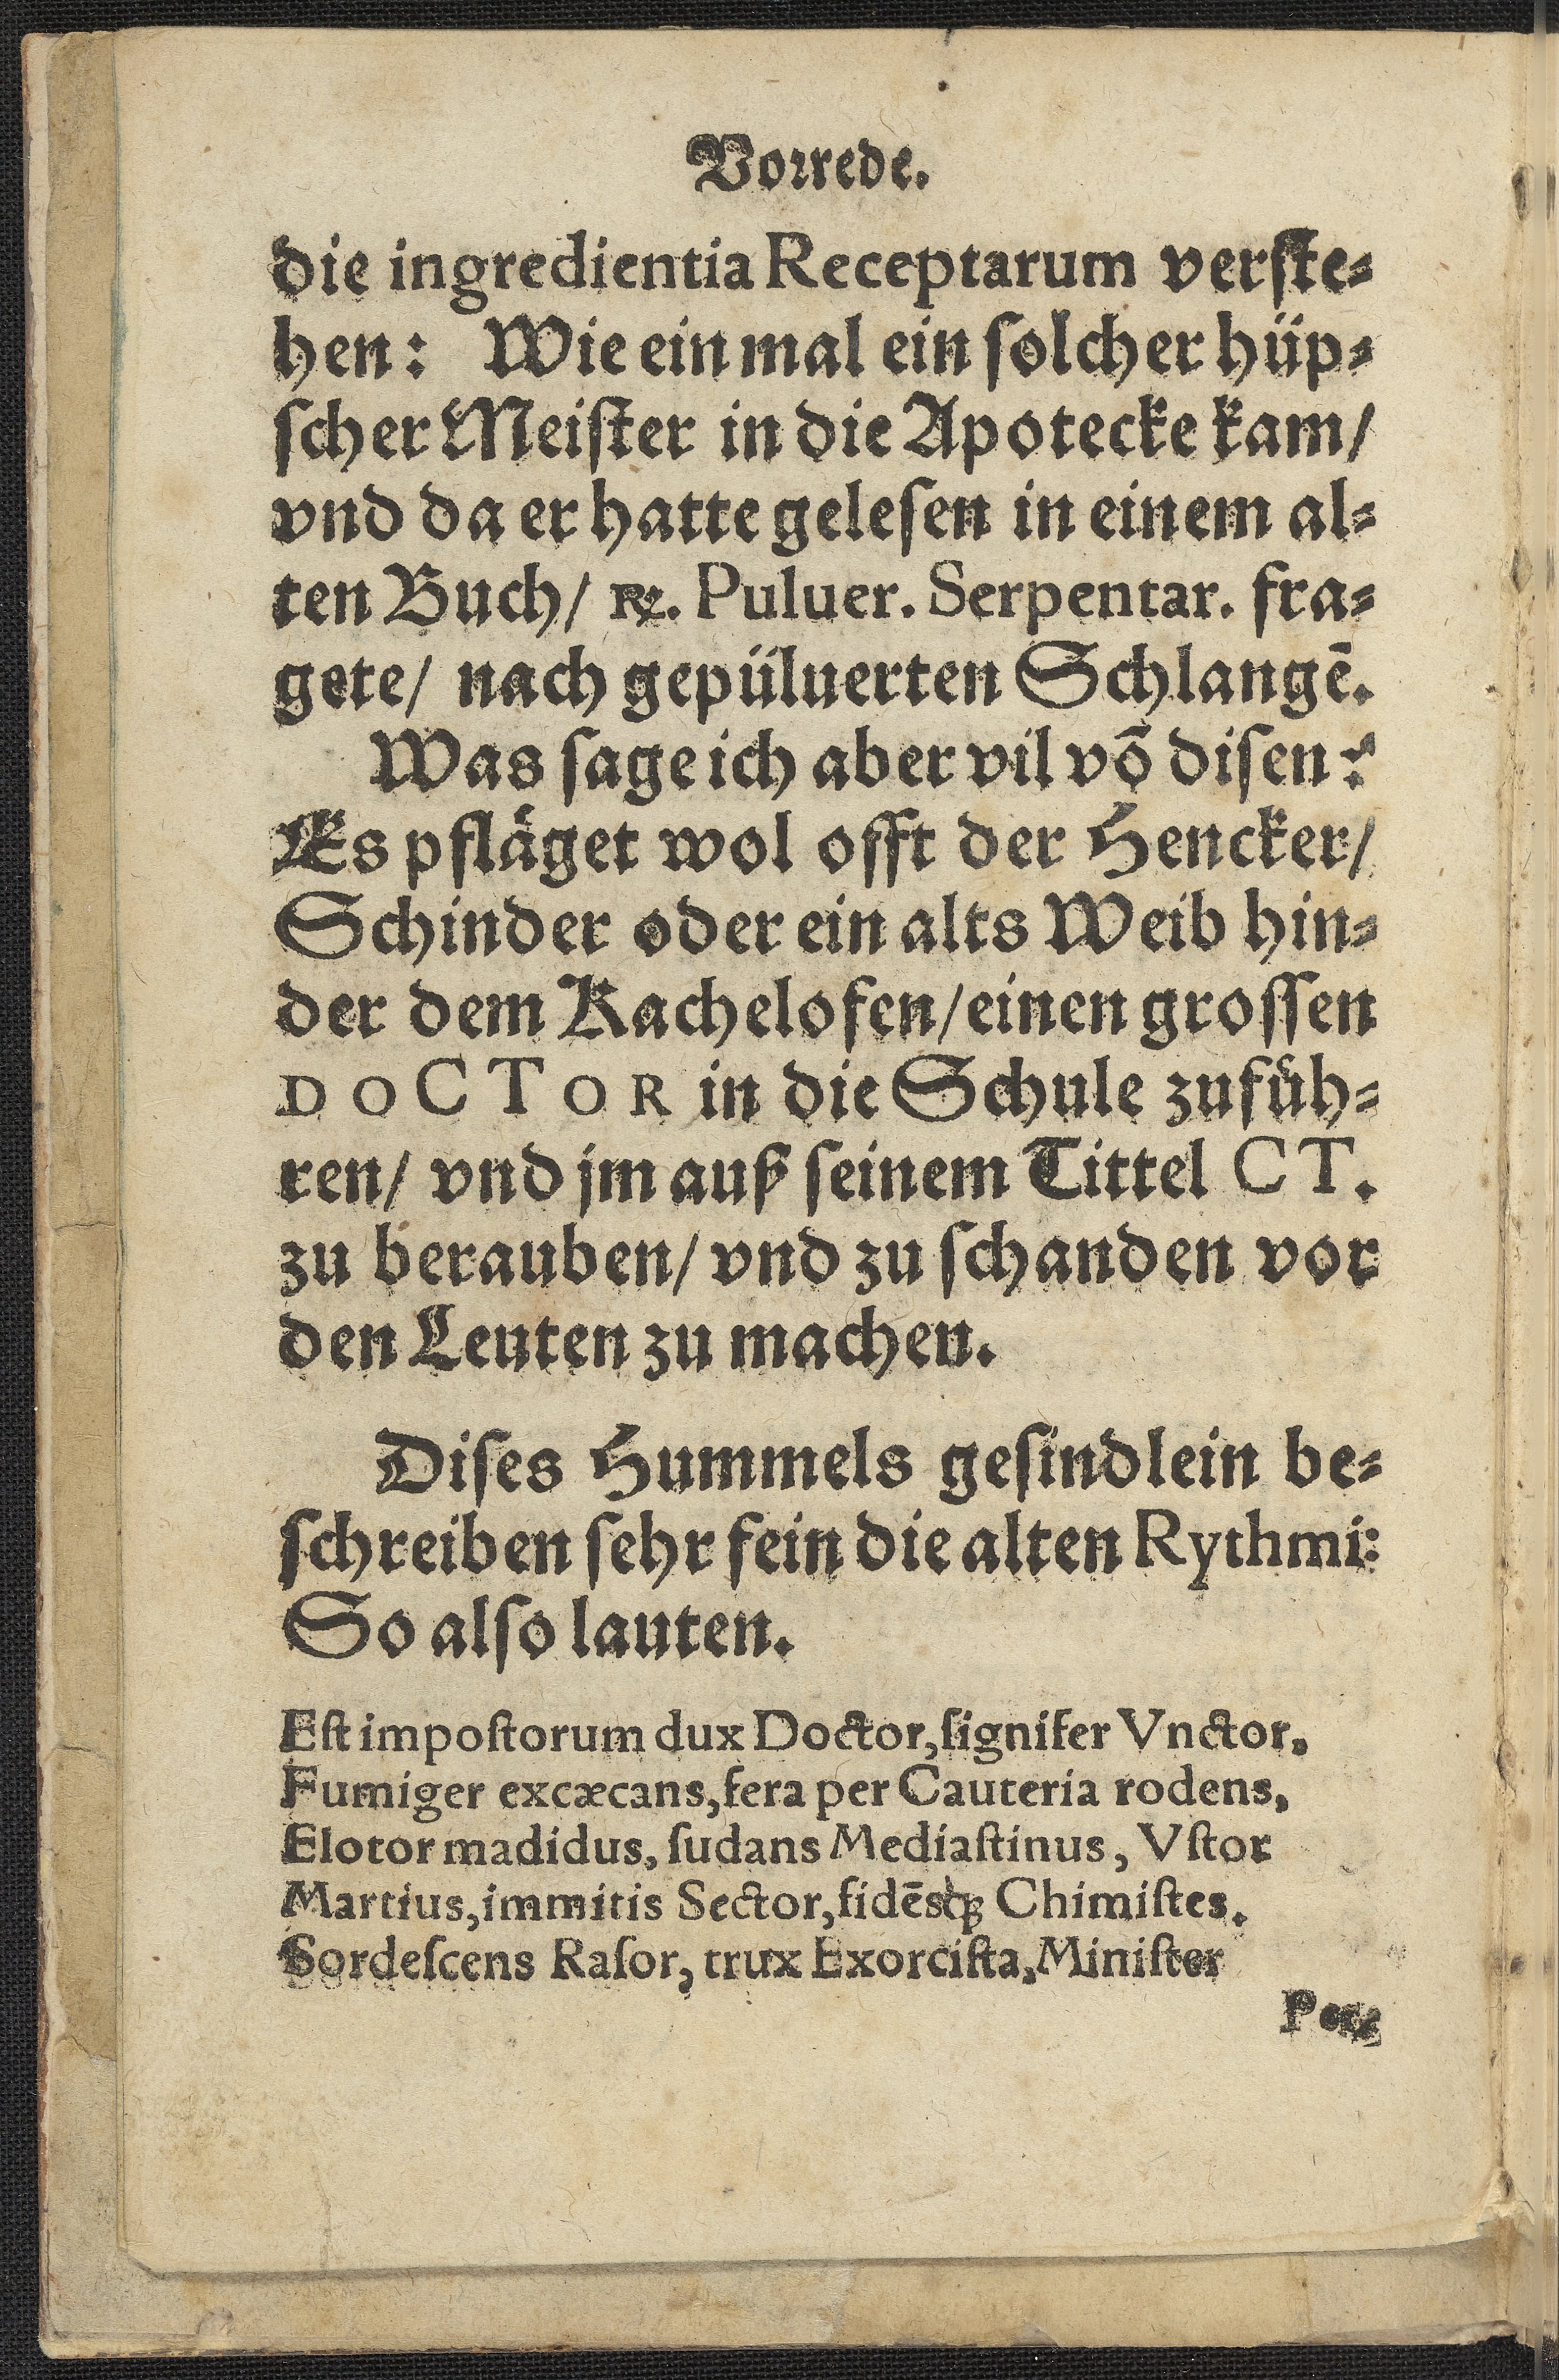 Vorrede.
die ingredientia Receptarum verſte⸗
hen: Wie ein mal ein ſolcher hüp⸗
ſcher Meiſter in die Apotecke kam/
vnd da er hatte geleſen in einem al⸗
ten Buch/ ℞. Puluer. Serpentar. fra⸗
gete/ nach gepüluerten Schlangē.
Was ſage ich aber vil võ diſen?
Es pflåget wol offt der Hencker/
Schinder oder ein alts Weib hin⸗
der dem Kachelofen/ einen groſſen
DOCTOR in die Schule zufüh⸗
ren/ vnd jm auß ſeinem Tittel CT.
zu berauben/ vnd zu ſchanden vor
den Leuten zu machen.
Diſes Hummels geſindlein be⸗
ſchreiben ſehr fein die alten Rythmi:
So alſo lauten.
Eſt impoſtorum dux Doctor, ſignifer Vnctor.
Fumiger excæcans, fera per Cauteria rodens,
Elotor madidus, ſudans Mediaſtinus, Vſtor
Martius, immitis Sector, fidēsq́ꝫ Chimiſtes.
Sordeſcens Raſor, trux Exorciſta, Miniſter
Per⸗